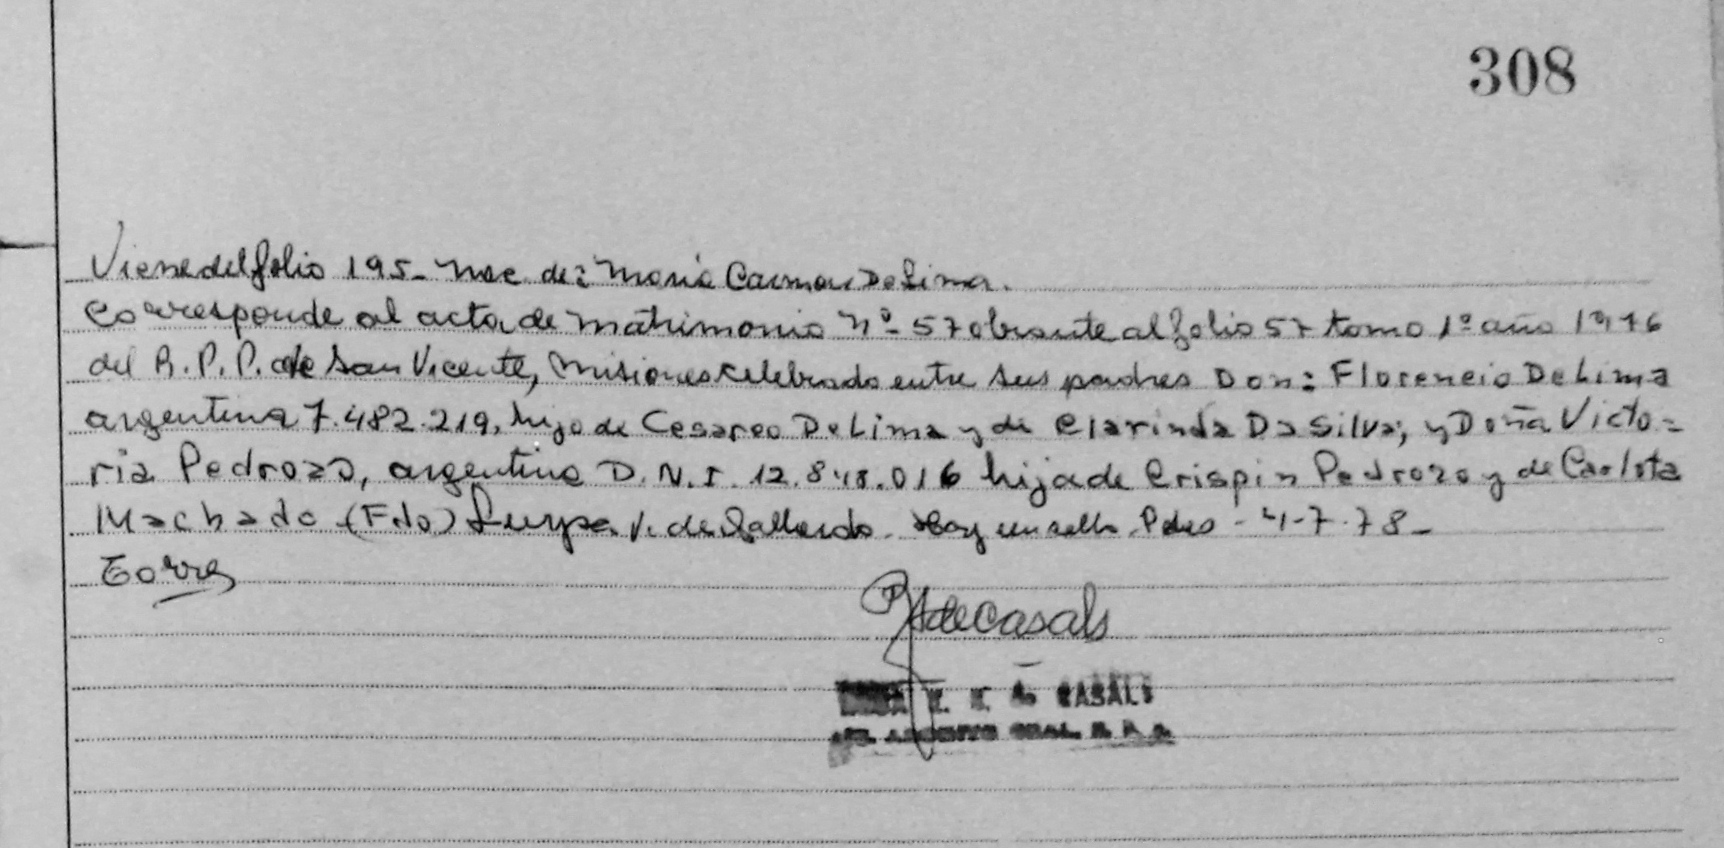 308
Viene del folio 195- Nac de: María Carmen De Lima.
Corresponde al acta de matrimonio nº 57 obrante al folio 57 tomo 1º año 1976
del R.P.P. de San Vicente, Misiones celebrado entre sus padres Don: Florencio De Lima
argentina 7.482.219, hijo de Cesareo De Lima y de Clarinda Da Silva; y Doña Victo=
ria Pedrozo, argentina D.N.I. 12.848.016 hija de Crispin Pedrozo y de Carlota
Machado (Fdo) V. de Gallardo. Hay un sello. Pdas - 4-7-78-
Torres
de Casals
CASALS
GRAL. R.